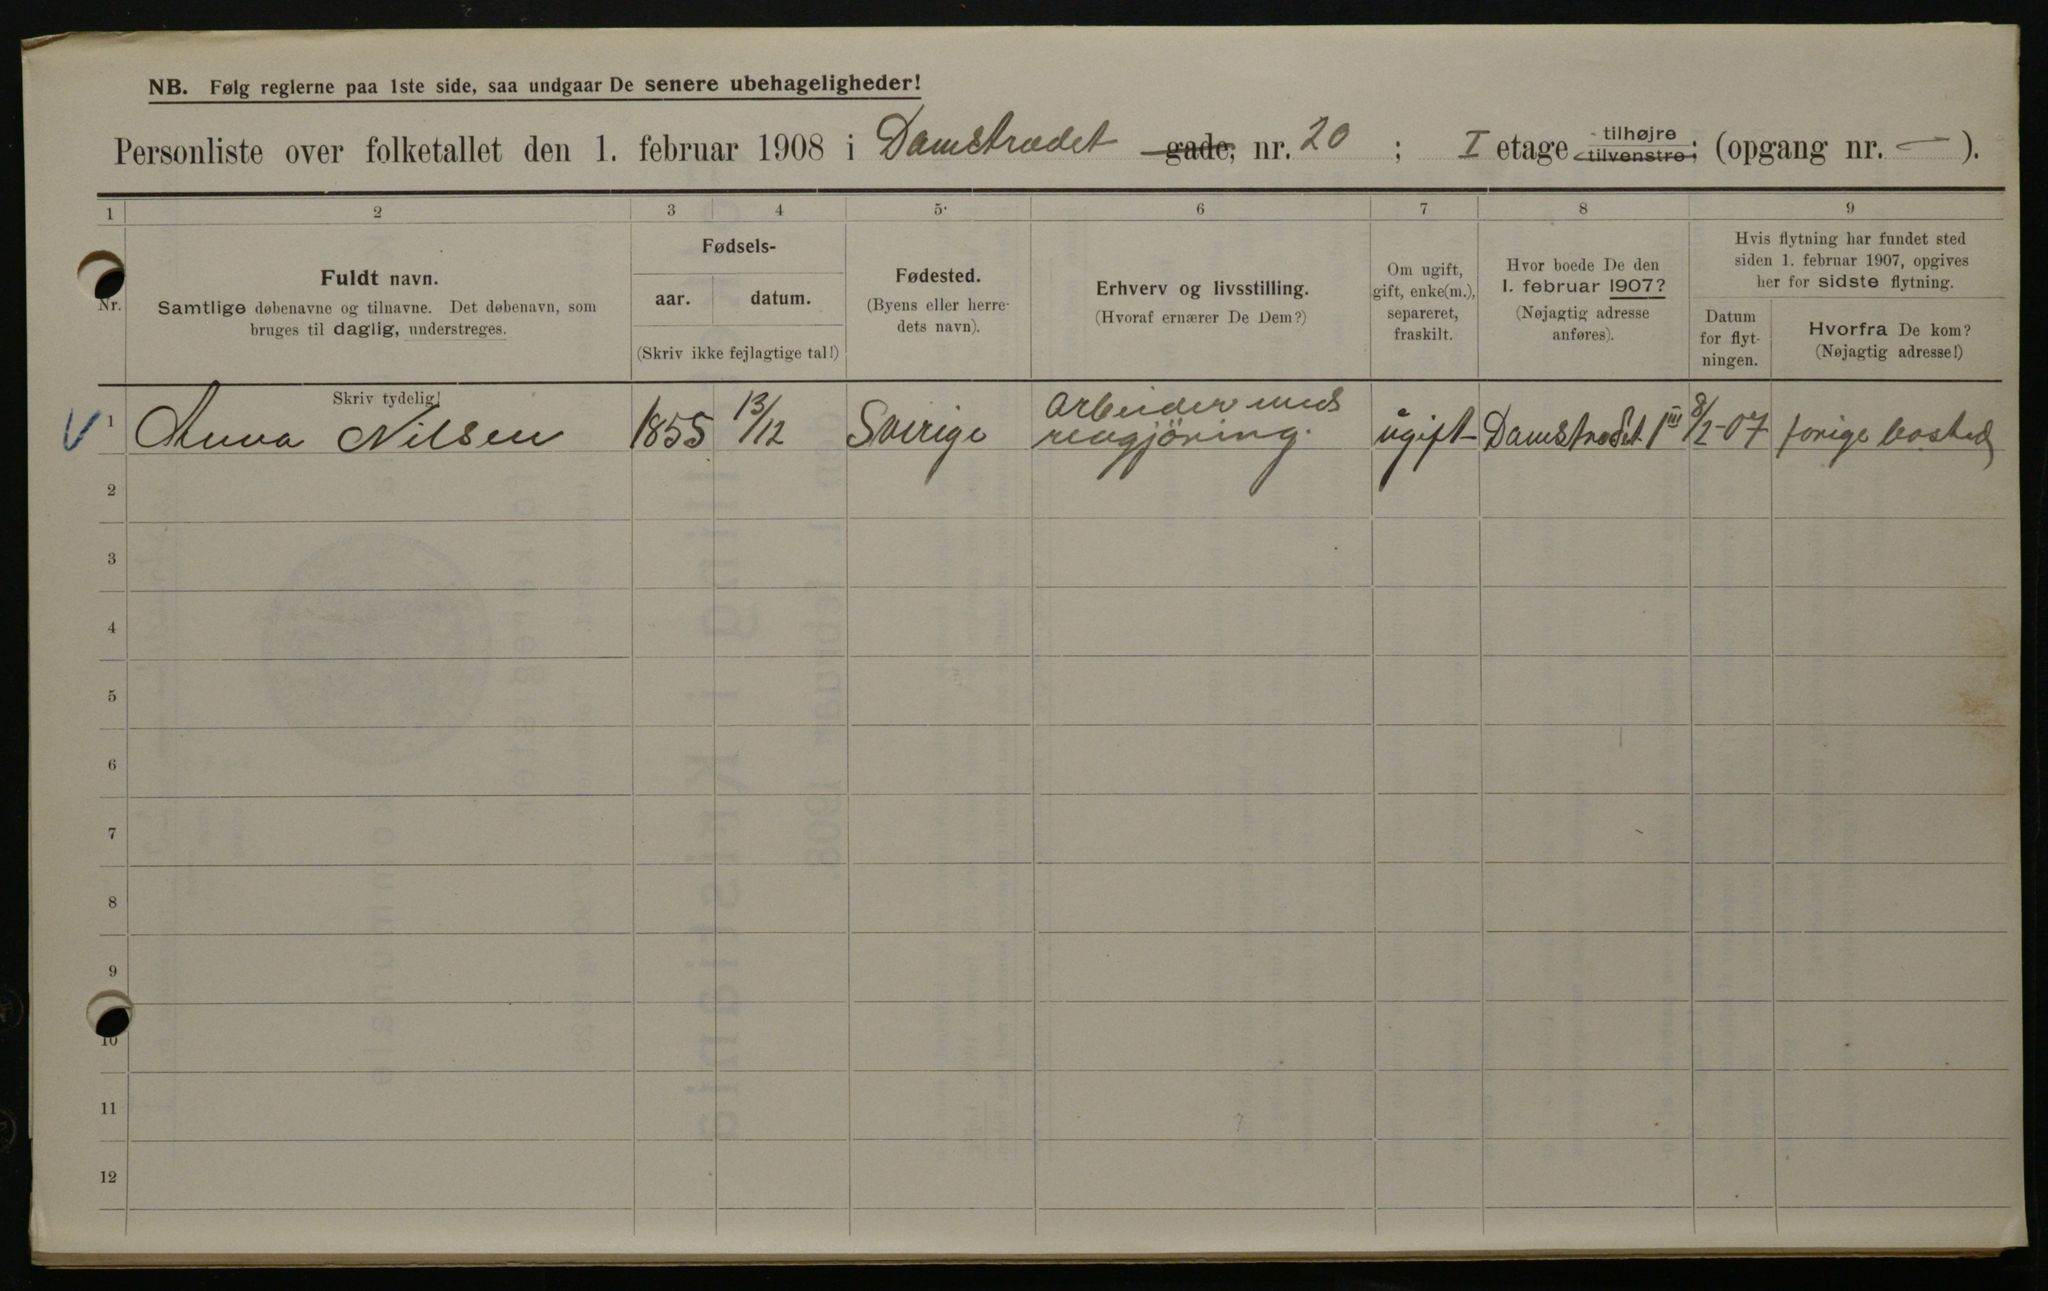 NB. Følg reglerne paa 1ste side, saa undgaar De senere ubehageligheder!
Personliste over folketallet den 1. februar 1908 i Damstrædet gade, nr. 20 ; I etage tilhøjre tilvenstre; (opgang nr. — ).
1 2 3 4 5. 6 7 8 9
Nr.
Fuldt navn.
Samtlige døbenavne og tilnavne. Det døbenavn, som
bruges til daglig, understreges.
Fødsels-
aar. datum.
(Skriv ikke fejlagtige tal!)
Fødested.
(Byens eller herre-
dets navn).
Erhverv og livsstilling.
(Hvoraf ernærer De Dem?)
Om ugift,
gift, enke(m.),
separeret,
fraskilt.
Hvor boede De den
1. februar 1907?
(Nøjagtig adresse
anføres).
Hvis flytning har fundet sted
siden 1. februar 1907, opgives
her for sidste flytning.
Datum
for flyt-
ningen.
Hvorfra De kom?
(Nøjagtig adresse!)
Skriv tydelig!
1 Anna Nilsen 1855 13/12 Sverige Arbeider med rengjöring. ugift Damstrædet 1 III 8/2-07 forige bosted
2
3
4
5
6
7
8
9
10
11
12